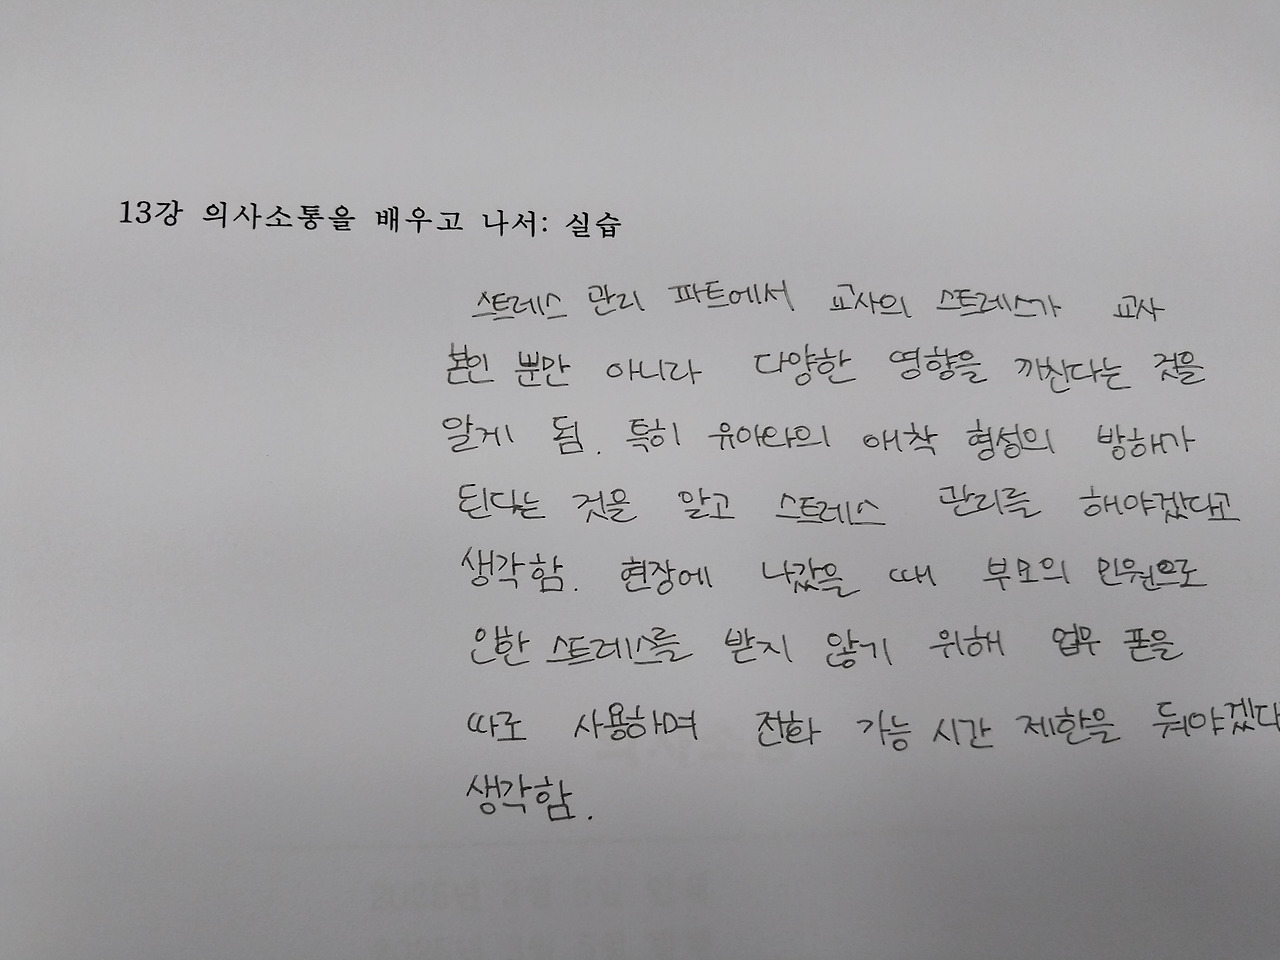 13강 의사소통을 배우고 나서: 실습
스트레스 관리 파트에서 교사의 스트레스가 교사
본인 뿐만 아니라 다양한 영향을 끼친다는 것을
알게 됨. 특히 유아와의 애착 형성의 방해가
된다는 것을 알고 스트레스 관리를 해야겠다고
생각함. 현장에 나갔을 때 부모의 민원으로
인한 스트레스를 받지 않기 위해 업무 폰을
따로 사용하며 전화 가능 시간 제한을 둬야겠다
생각함.